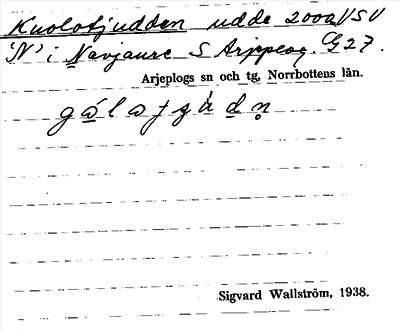 Kuolotjudden udde 2000 VSV
'N' i Navjaure S Arjeplog. G27.
Arjeplogs sn och tg, Norrbottens län.
Sigvard Wallström, 1938.